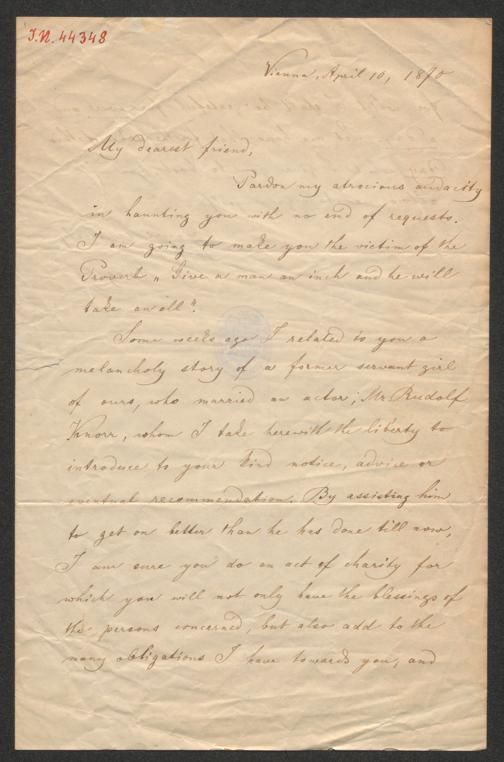 I.N. 44348
Vienna, April 10, 1870
My dearest friend,
Pardon my atrocious audacity
in haunting you with no end of requests.
I am going to make you the victim of the
Proverb „Give a man an inch and he will
take an ell".
Some weeks ago I related to you a
melancholy story of a former servant girl
of ours, who married an actor, Mr. Rudolf
Knorr, whom I take herewith the liberty to
introduce to your kind notice, advice or
eventual recommendation. By assisting him
to get on better than he has done till now,
I am sure you do an act of charity for
which you will not only have the blessings of
the persons concerned, but also add to the
many obligations I have towards you, and